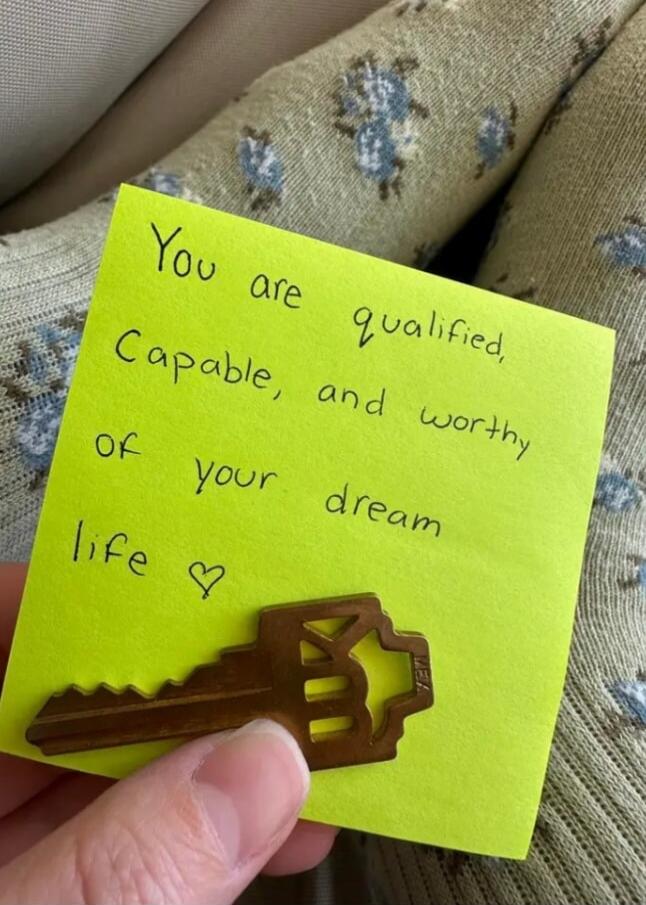 You are qualified,
Capable, and worthy
of your dream
life ♡